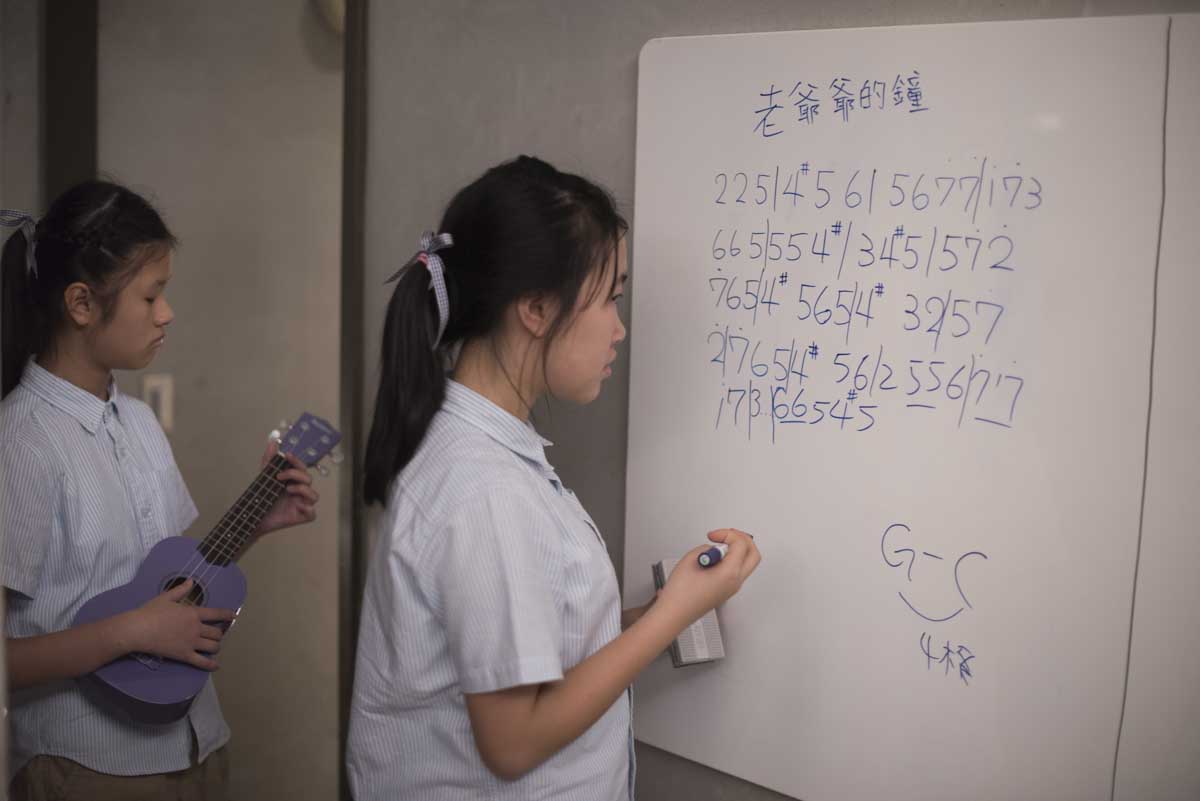 老爺爺的鐘
225|4#561|5677|i73
665|554#|34#5|572
765|4#565|4#32|57
2|765|4#56|2556|77
i7|3..|6654#5
G-C
4格